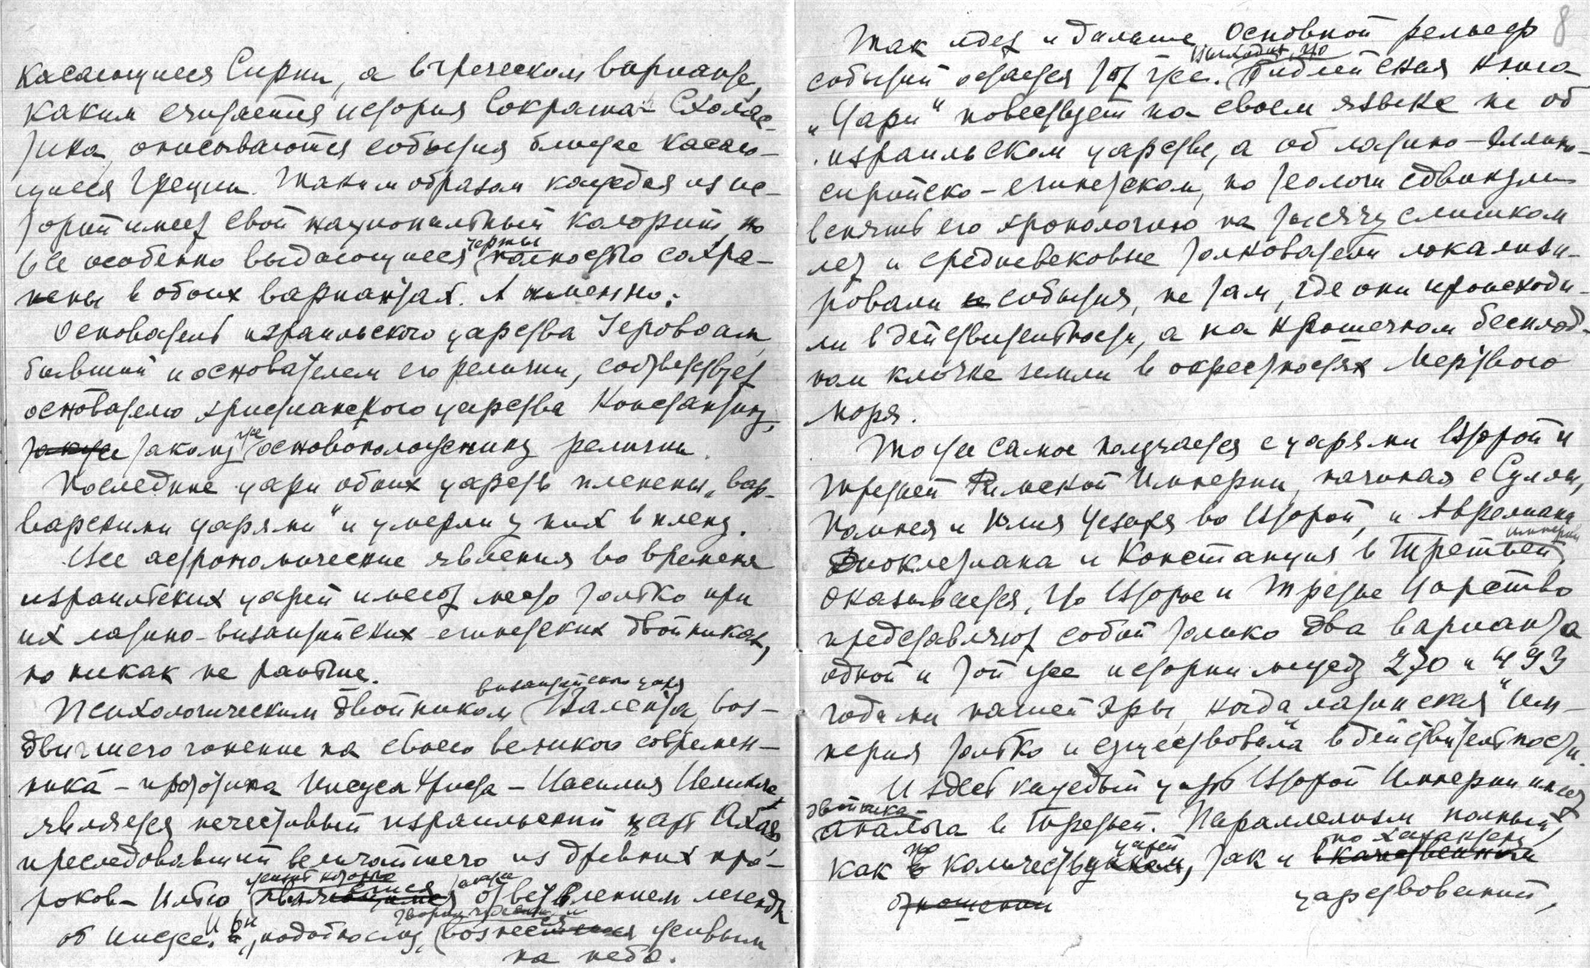 касающиеся Сирии, а в греческом варианте,
каким считается история Сократа Схолас-
тика, описываются события ближе касаю-
щиеся Греции. Таким образом каждая из ис-
торий имеет свой национальный колорит, но
все особенно выдающиеся черты полностью сохра-
нены в обоих вариантах. А именно:
Основатель израильского царства Иеровоам,
бывший и основателем его религии, соответствует
основателю христианского царства Константину,
такому же основоположнику религии.
Последние цари обоих царств пленены „вар-
варскими царями“ и умерли у них в плену.
Все астрономические явления во времена
израильских царей имеют место только при
их латино-византийских-египетских двойниках,
но никак не раньше.
Психологическим двойником византийского царя Валента, воз-
двигшего гонение на своего великого современ-
ника – прототипа Иисуса Христа – Василия Великого,
является нечестивый израильский царь Ахав,
преследовавший величайшего из древних про-
роков – Илию
ответвлением легенды
об Иисусе. И он, подобно ему, творил чудеса и вознесся живым
на небо.
8
Так идет и дальше. Основной рельеф
событий остается тот же. Выходит, что Библейская книга
„Цари“ повествует на своем языке не об
израильском царстве, а об латино-эллино-
сирийско-египетском, но теологи сдвинули
вспять его хронологию на тысячу слишком
лет и средневековые толкователи локализи-
ровали события, не там, где они происходи-
ли в действительности, а на крошечном бесплод-
ном клочке земли в окрестностях Мертвого
моря.
То же самое получается с царями Второй и
Третьей Римской Империи, начиная с Суллы,
Помпея и Юлия Цезаря во Второй, и Аврелиана
Диоклетиана и Констанция в Третьей империи
Оказывается, что Второе и Третье Царство
представляют собой только два варианта
одной и той же истории между 270 и 493
годами нашей эры, когда латинская „Им-
перия“ только и существовала в действительности.
И здесь каждый царь Второй Империи имеет
двойника в Третьей. Параллелизм полный,
как по количеству царей, так и по характеру
царствований,